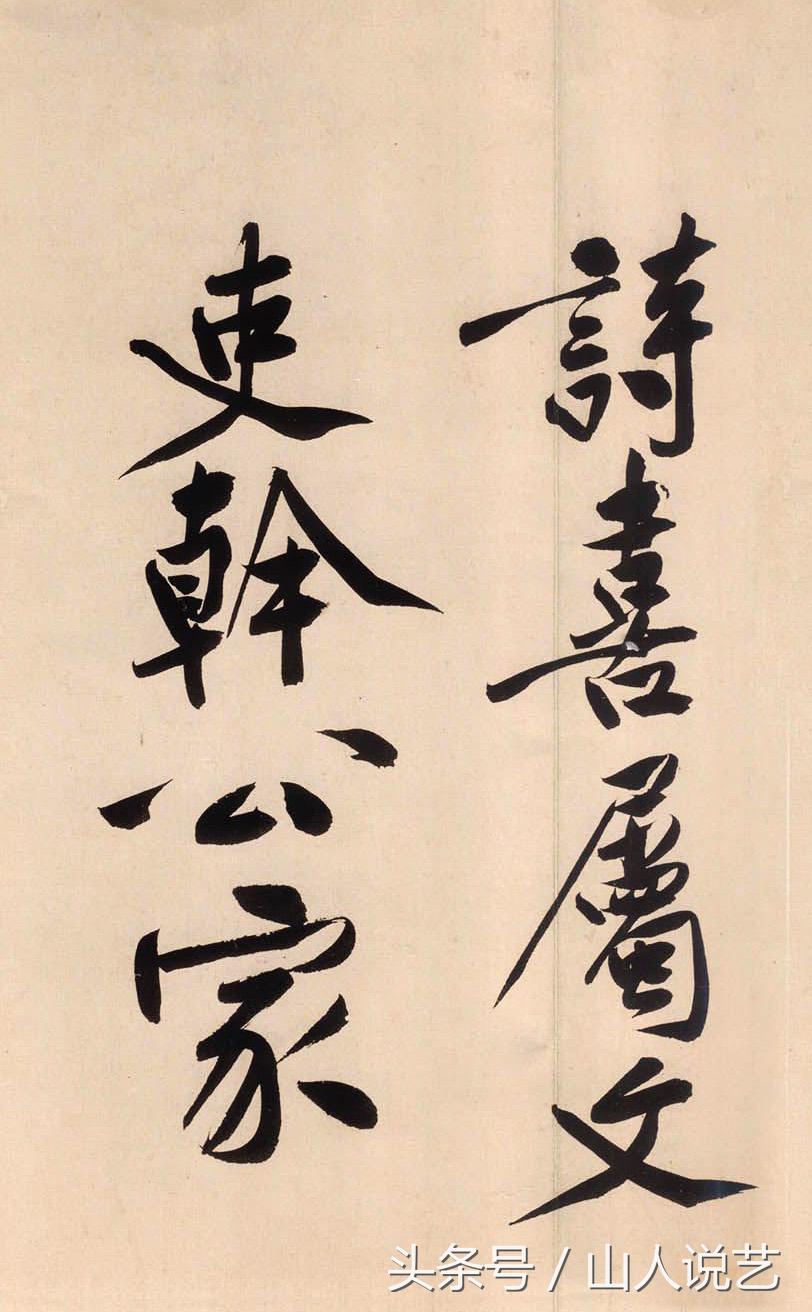 詩喜屬文
吏幹公家
头条号 / 山人说艺